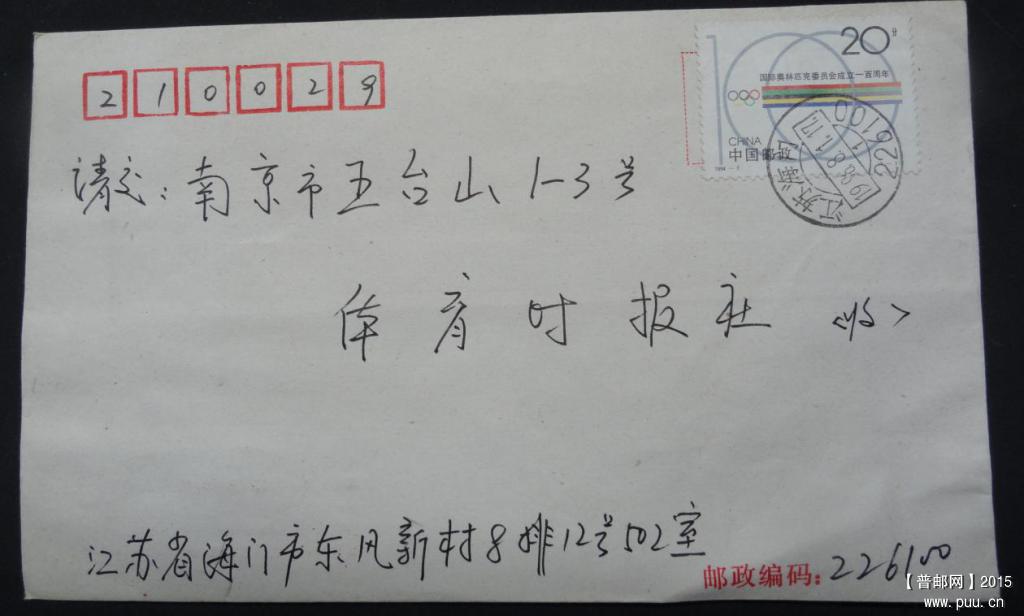 210029
20分
国际奥林匹克委员会成立一百周年
CHINA
中国邮政
226100
江苏 海门
请交：南京市五台山1-3号
体育时报社 <收>
江苏省海门市东风新村8排12号502室
邮政编码：226100
【普邮网】2015
www.puu.cn